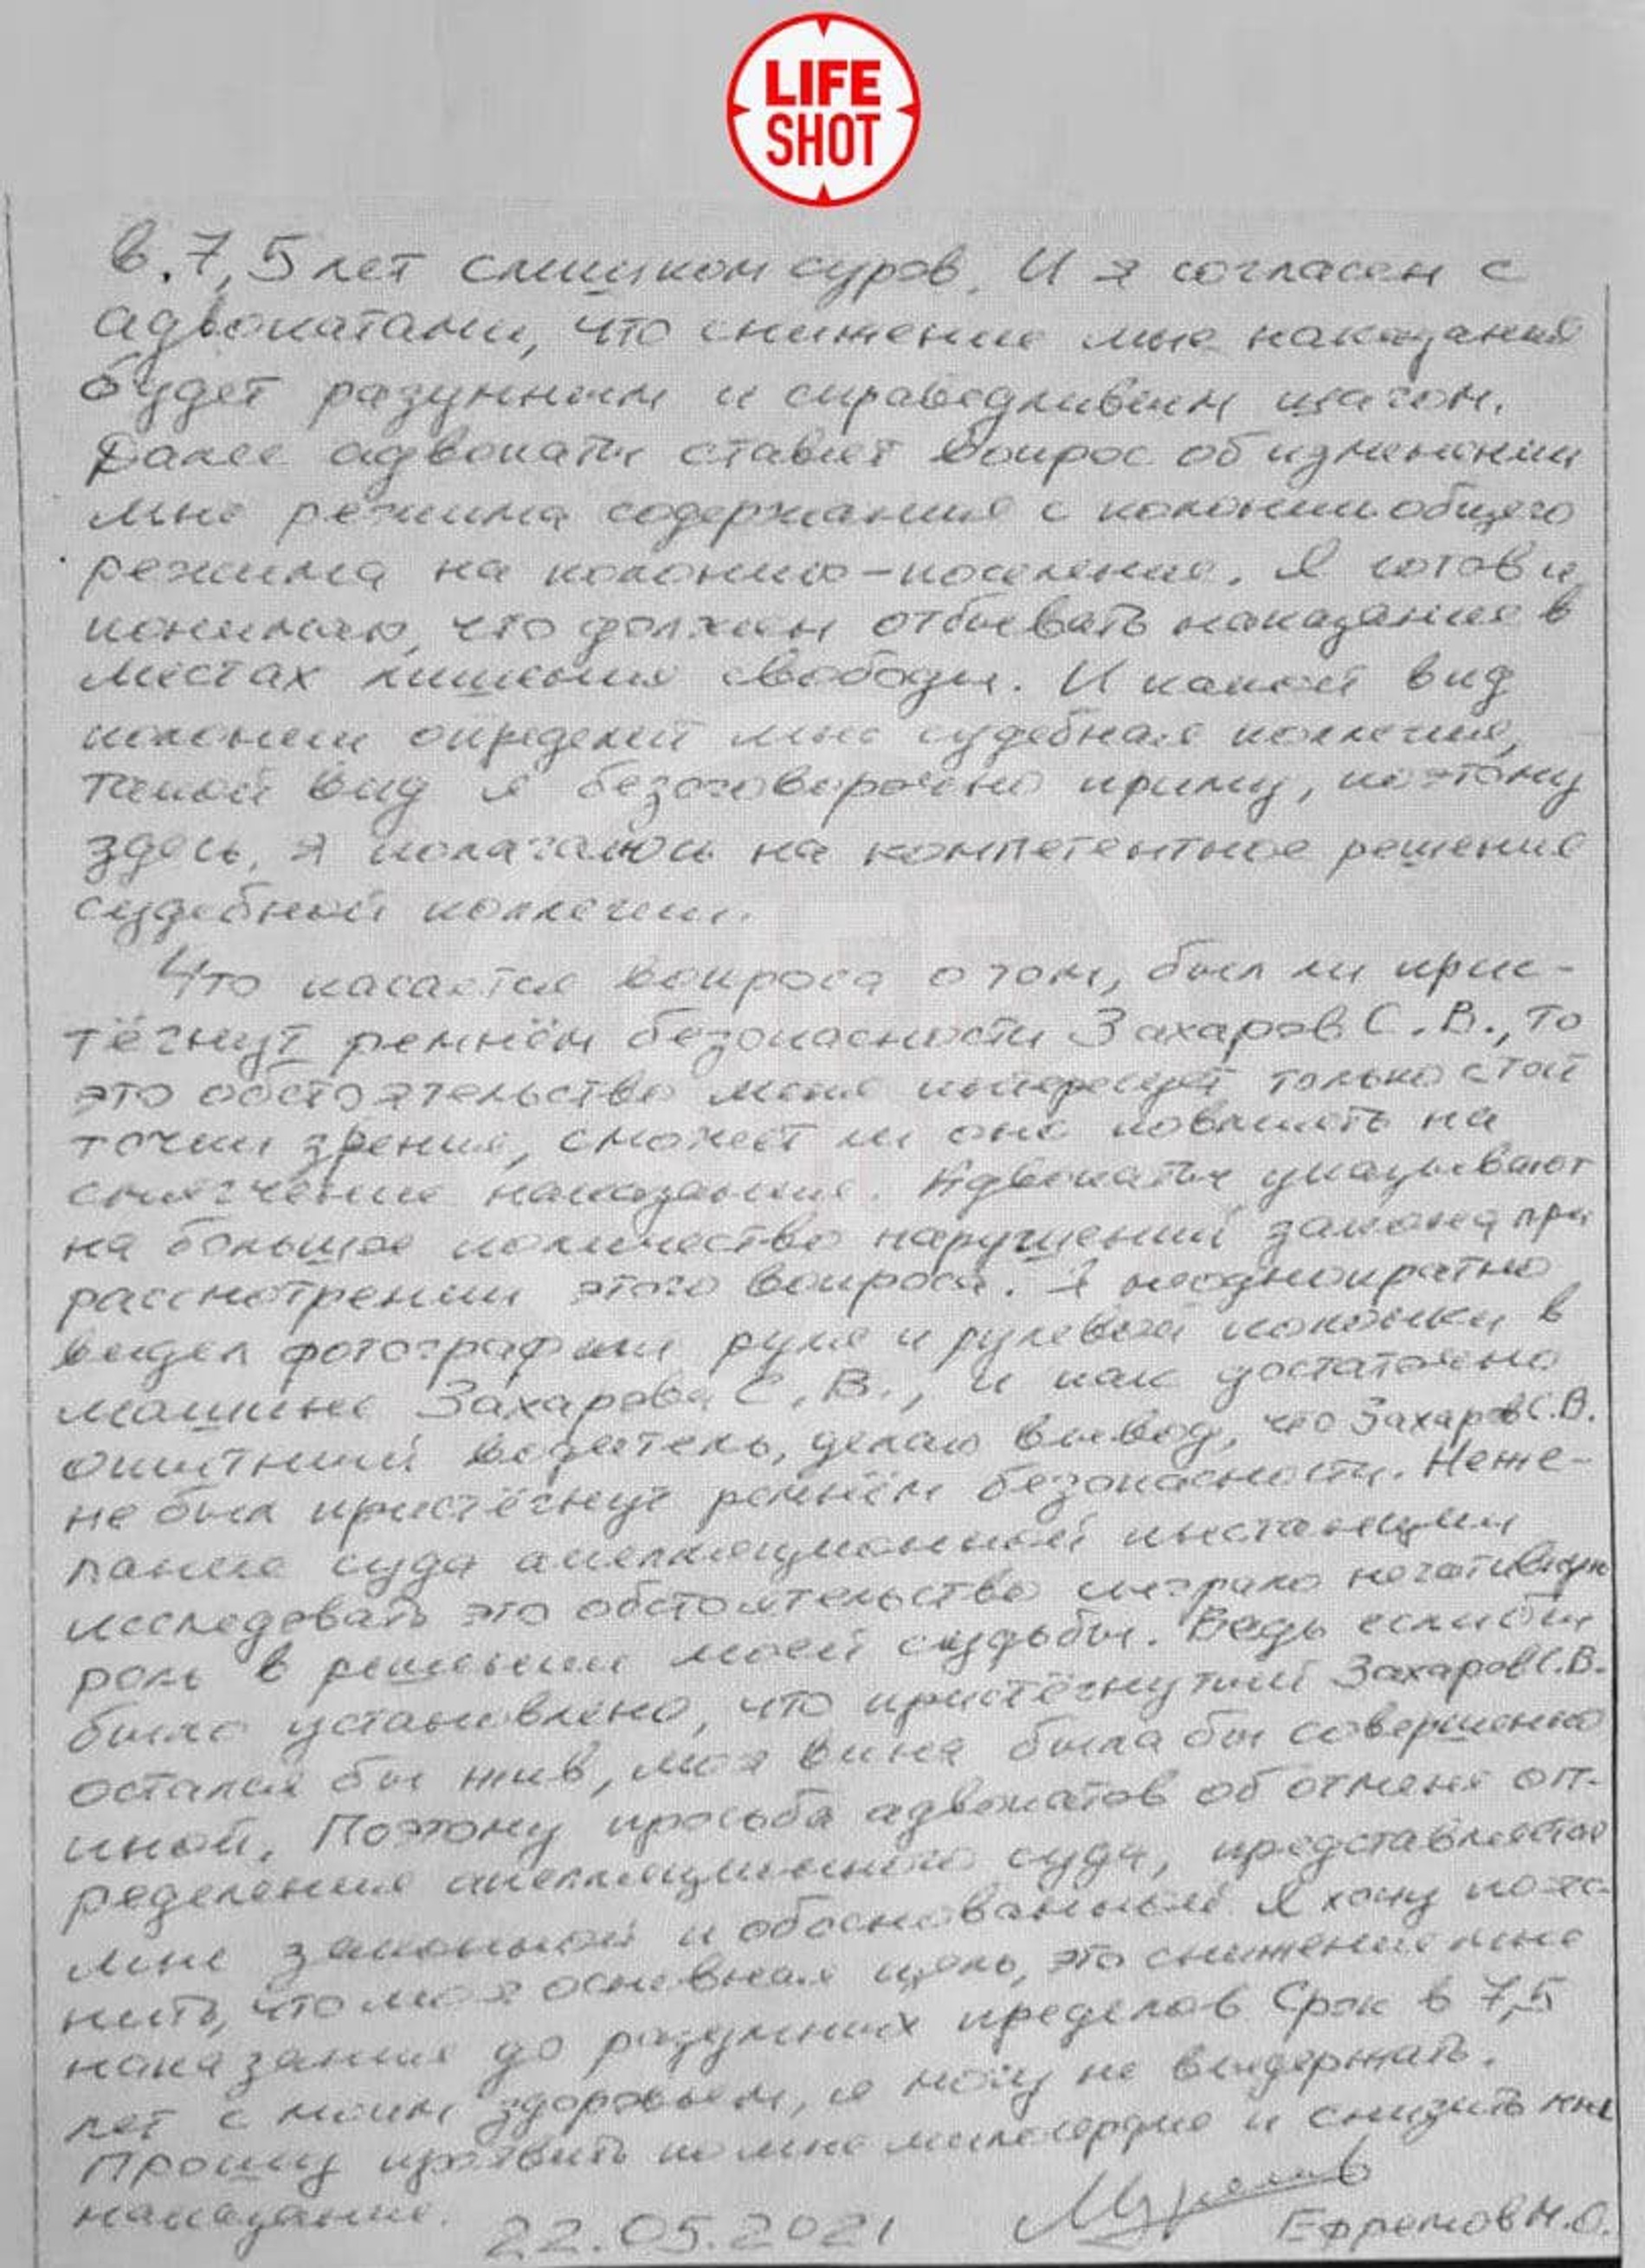 LIFE
SHOT
в 7,5 лет слишком суров. И я согласен с
адвокатами, что снижение мне наказания
будет разумным и справедливым шагом.
Далее адвокаты ставят вопрос об изменении
мне режима содержания с колонии общего
режима на колонию-поселение. Я готов и
понимаю, что должен отбывать наказание в
местах лишения свободы. И какой вид
колонии определит мне судебная коллегия,
такой вид я безоговорочно приму, поэтому
здесь, я полагаюсь на компетентное решение
судебной коллегии.
Что касается вопроса о том, был ли прис-
тёгнут ремнём безопасности Захаров С.В., то
это обстоятельство меня интересует только с той
точки зрения, сможет ли оно повлиять на
смягчение наказания. Адвокаты указывают
на большое количество нарушений закона при
рассмотрении этого вопроса. Я неоднократно
видел фотографии руля и рулевой колонки в
машине Захарова С.В., и как достаточно
опытный водитель, делаю вывод, что Захаров С.В.
не был пристёгнут ремнём безопасности. Неже-
лание суда апелляционной инстанции
исследовать это обстоятельство сыграло негативную
роль в решении моей судьбы. Ведь если бы
было установлено, что пристёгнутый Захаров С.В.
остался бы жив, моя вина была бы совершенно
иной. Поэтому просьба адвокатов об отмене оп-
ределения апелляционного суда, представляется
мне законной и обоснованной. Я хочу пояс-
нить, что моя основная цель, это снижение мне
наказания до разумных пределов. Срок в 7,5
лет с моим здоровьем, я могу не выдержать.
Прошу проявить ко мне милосердие и снизить мне
наказание.
22.05.2021
Ефремов М.О.